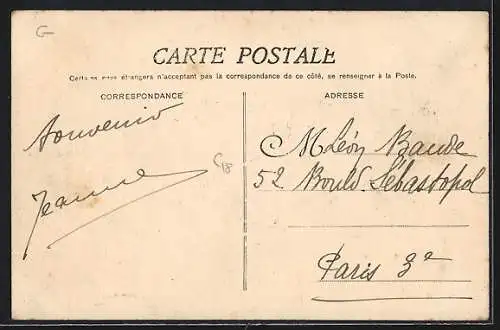 G
CARTE POSTALE
Certains pays étrangers n'acceptant pas la correspondance de ce côté, se renseigner à la Poste.
CORRESPONDANCE
Souvenir
Jeanne
ADRESSE
M Léon Baude
52 Bould Sébastopol
Paris 3e